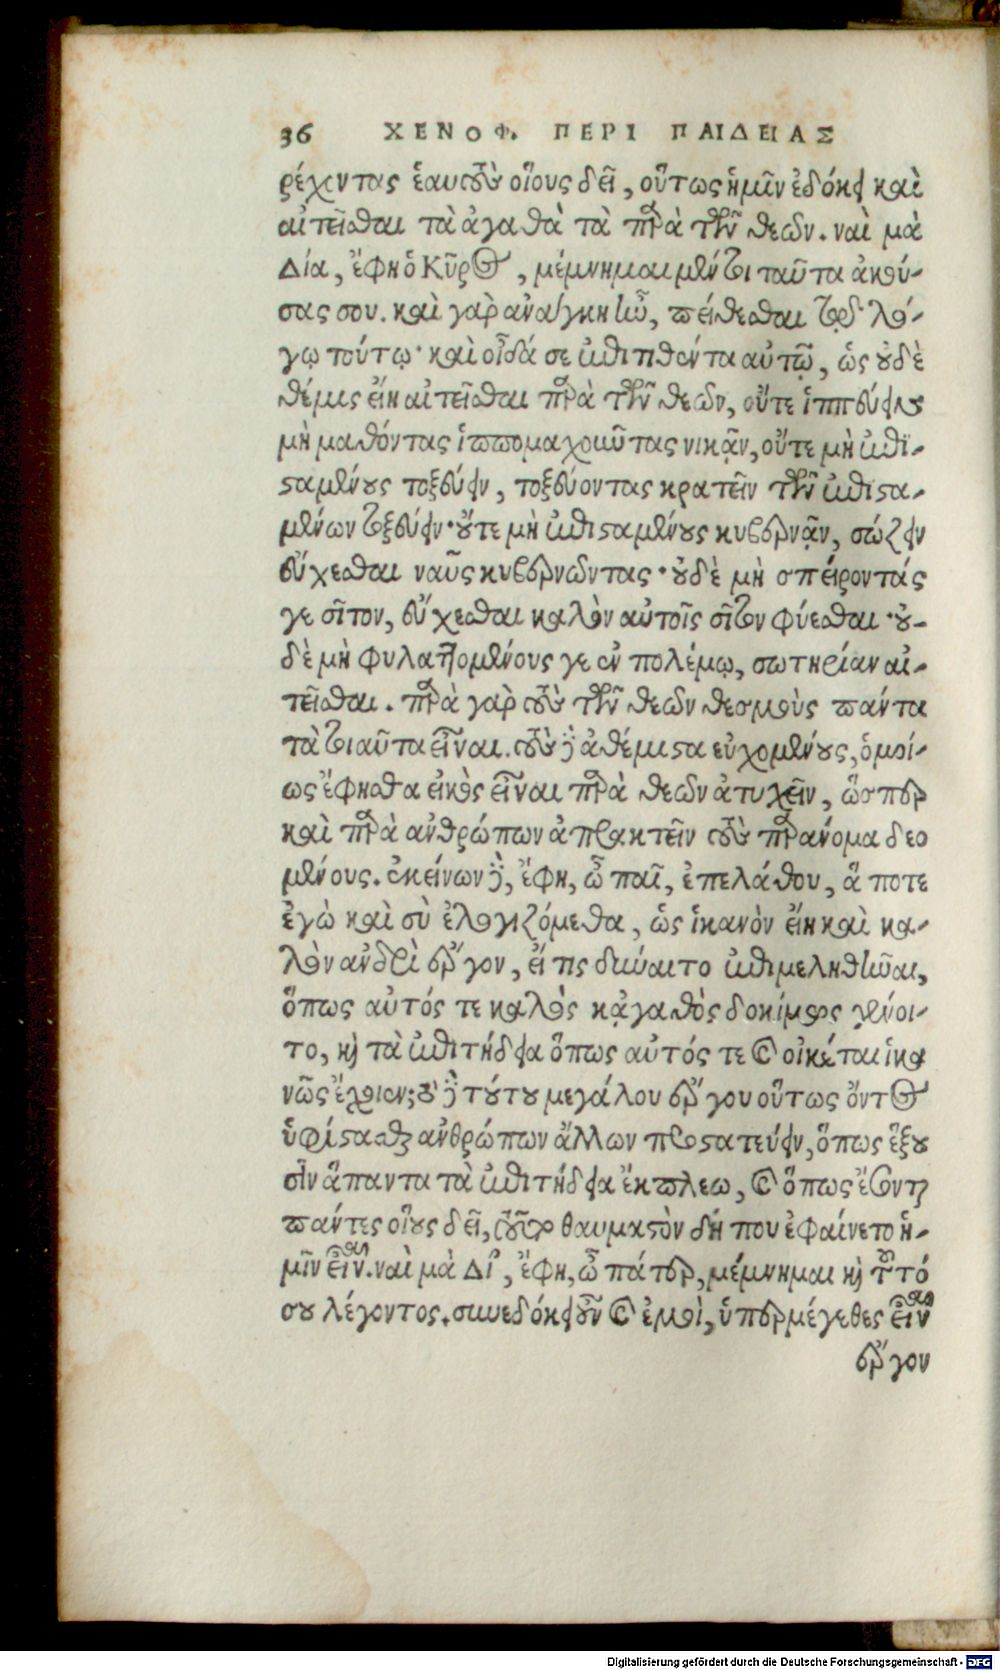 36 ΧΕΝΟΦ. ΠΕΡΙ ΠΑΙΔΕΙΑΣ
ρέχοντας ἑαυτοὺς οἵους δεῖ, οὕτως ἡμῖν ἐδόκει καὶ
αἰτεῖσθαι τὰ ἀγαθὰ τὰ παρὰ τῶν θεῶν. ναὶ μὰ
Δία, ἔφη ὁ Κῦρος, μέμνημαι μέντοι ταῦτα ἀκού-
σας σου. καὶ γὰρ ἀνάγκη ἦν, πείθεσθαι τῷδε λό-
γῳ τούτῳ· καὶ οἶδά σε ἐπιτιθέντα αὐτῷ, ὡς οὐδὲ
θέμις εἴη αἰτεῖσθαι παρὰ τῶν θεῶν, οὔτε ἱππεύειν
μὴ μαθόντας ἱππομαχοῦντας νικᾷν, οὔτε μὴ ἐπι-
σταμένους τοξεύειν, τοξεύοντας κρατεῖν τῶν ἐπιστα-
μένων τοξεύειν· οὔτε μὴ ἐπισταμένους κυβερνᾷν, σώζειν
εὔχεσθαι ναῦς κυβερνῶντας· οὐδὲ μὴ σπείροντάς
γε σῖτον, εὔχεσθαι καλὸν αὐτοῖς σῖτον φύεσθαι· οὐ-
δὲ μὴ φυλαττομένους γε ἐν πολέμῳ, σωτηρίαν αἰ-
τεῖσθαι. παρὰ γὰρ τοὺς τῶν θεῶν θεσμοὺς πάντα
τὰ τοιαῦτα εἶναι. τοὺς δὲ ἀθέμιστα εὐχομένους, ὁμοί-
ως ἔφησθα εἰκὸς εἶναι παρὰ θεῶν ἀτυχεῖν, ὥσπερ
καὶ παρὰ ἀνθρώπων ἀπρακτεῖν τοὺς παράνομα δεο
μένους. ἐκείνων δὲ, ἔφη, ὦ παῖ, ἐπελάθου, ἅ ποτε
ἐγὼ καὶ σὺ ἐλογιζόμεθα, ὡς ἱκανὸν εἴη καὶ κα-
λὸν ἀνδρὶ ἔργον, εἴ τις δύναιτο ἐπιμεληθῆναι,
ὅπως αὐτός τε καλὸς κἀγαθὸς δοκίμως γένοι-
το, καὶ τὰ ἐπιτήδεια ὅπως αὐτός τε καὶ οἰκέται ἱκα
νῶς ἔχοιεν; τοῦ δὲ τούτου μεγάλου ἔργου οὕτως ὄντος
ὑφίστασθαι ἀνθρώπων ἄλλων προστατεύειν, ὅπως ἕξου
σιν ἅπαντα τὰ ἐπιτήδεια ἔκπλεω, καὶ ὅπως ἔσονται
πάντες οἵους δεῖ, τοῦτο θαυμαστὸν δή που ἐφαίνετο ἡ-
μῖν εἶναι. ναὶ μὰ Δί, ἔφη, ὦ πάτερ, μέμνημαι καὶ τοῦτό
σου λέγοντος. συνεδόκει οὖν καὶ ἐμοὶ, ὑπερμέγεθες εἶναι
ἔργον
Digitalisierung gefördert durch die Deutsche Forschungsgemeinschaft - DFG